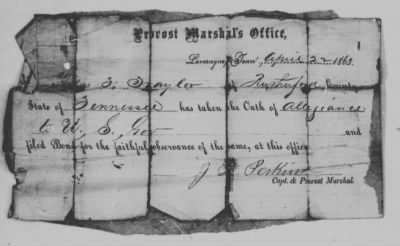 Provost Marshal's Office,
Lavergne, Tenn., April 22 1863.
S. Traylor of Rutherford County
State of Tennessee has taken the Oath of Allegiance
to U. S. Gov and
filed Bond for the faithful observance of the same, at this office
J. Perkins
Capt. & Provost Marshal.